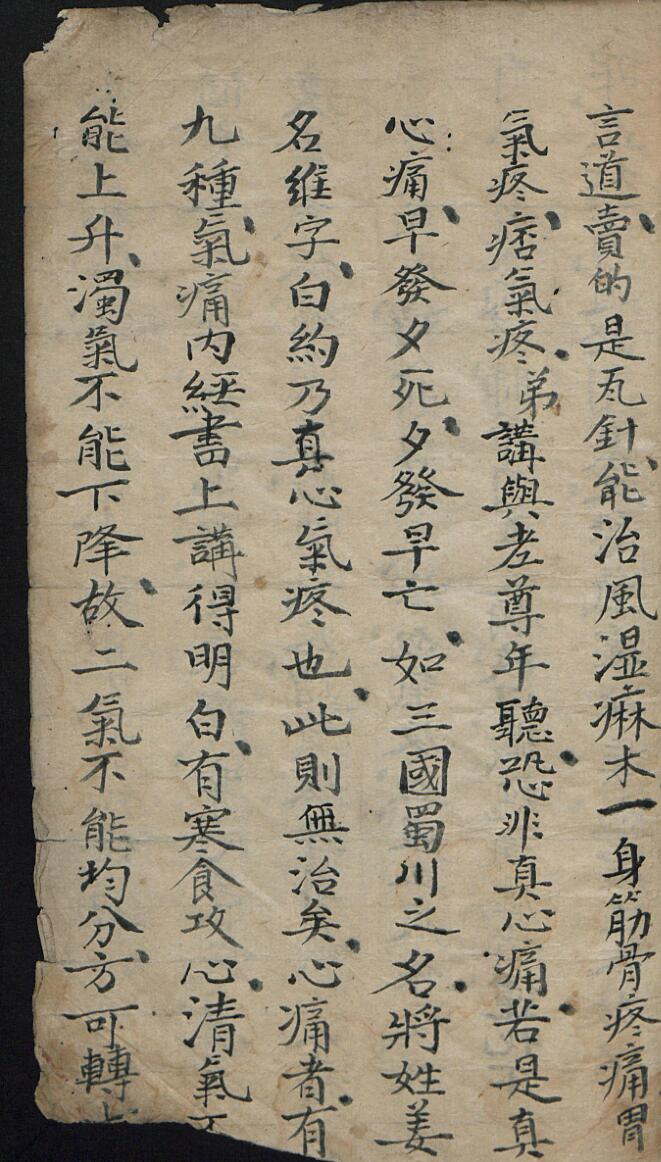 言道賣的是瓦針能治風湿痳木一身筋骨疼痛胃
氣疼痞氣疼弟講與老尊年聽恐非真心痛若是真
心痛早發夕死夕發早亡如三國蜀川之名將姓姜
名維字白約乃真心氣疼也此則無治矣心痛者有
九種氣痛内經書上講得明白有寒食攻心清氣不
能上升濁氣不能下降故二氣不能均分方可轉